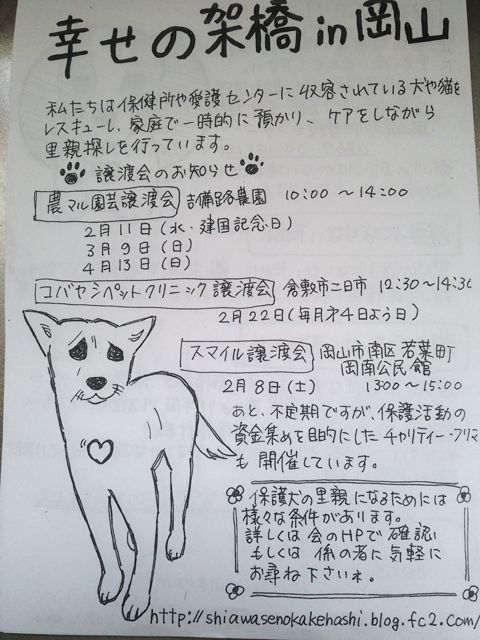 幸せの架橋 in 岡山
私たちは保健所や愛護センターに収容されている犬や猫を
レスキューし、家庭で一時的に預かり、ケアをしながら
里親探しを行っています。
譲渡会のお知らせ
農マル園芸譲渡会 吉備路農園 10:00～14:00
2月11日(水・建国記念日)
3月9日(日)
4月13日(日)
コバヤシペットクリニック譲渡会 倉敷市二日市 12:30～14:30
2月22日(毎月才4日よう日)
スマイル譲渡会 岡山市南区若葉町
岡南公民館
2月8日(土) 1300～15:00
あと、不定期ですが、保護活動の
資金集めを目的にしたチャリティー・フリマ
も開催しています。
保護犬の里親になるためには
様々な条件があります。
詳しくは会のHPで確認い
もしくは係の者に気軽に
お尋ね下さいネ。
http://shiawasenokakehashi.blog.fc2.com/